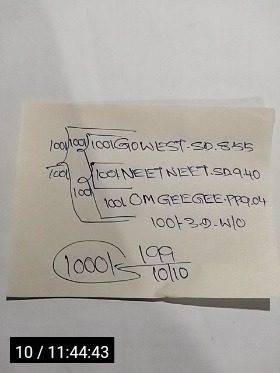 100/ 100/ 100/ GOWEST.SD.8.55
100/ 100/ NEETNEET.SD.9.40
100/ 100/ OMGEEGEE.PP.9.04
100/-3.D-W/O
1000/- 199
10/10
10 / 11:44:43